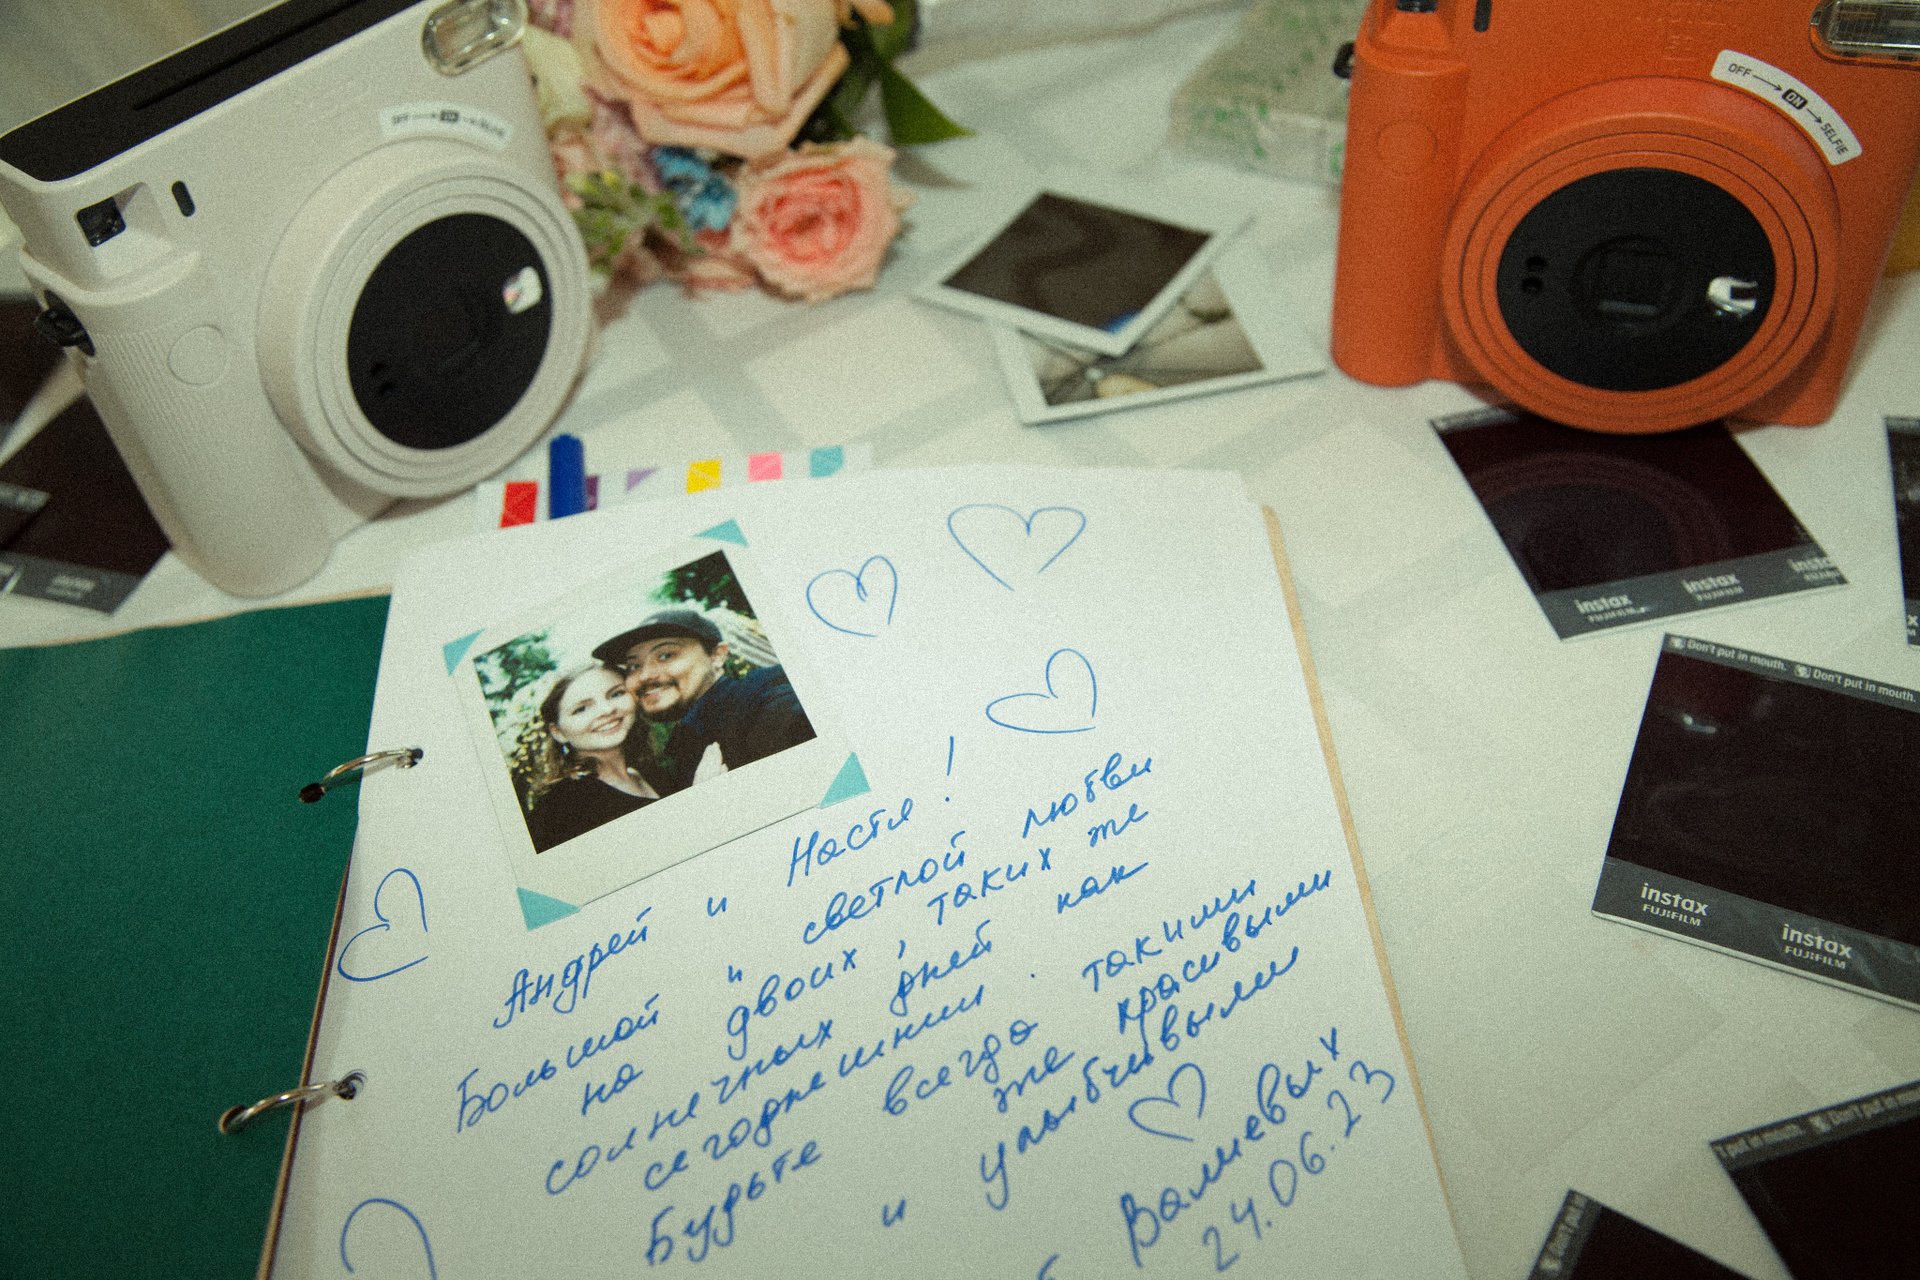 OFF → ON → SELFIE
OFF → ON → SELFIE
Андрей и Настя!
Большой и светлой любви
на двоих, таких же
солнечных дней как
сегодняшний.
Будьте всегда такими
же красивыми
и улыбчивыми
Валиевых
24.06.23
instax
FUJIFILM
instax
FUJIFILM
instax
FUJIFILM
Don't put in mouth. Don't put in mouth.
instax
FUJIFILM
instax
FUJIFILM
t put in mouth. Don't put in mouth
Don't put in
instax